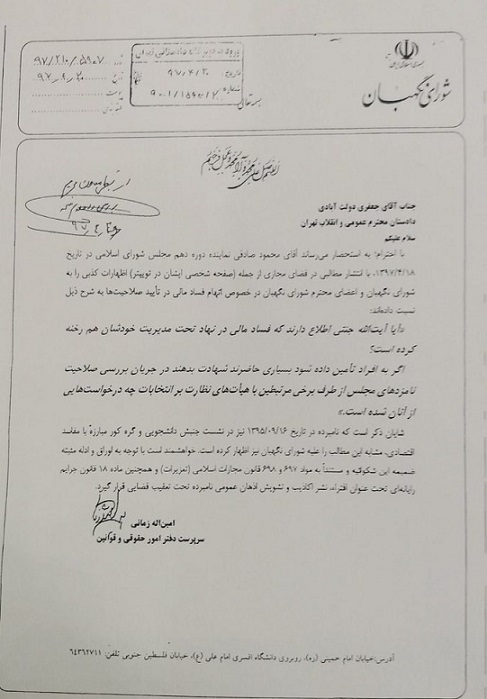 جمهوری اسلامی ایران
شورای نگهبان
بسمه تعالی
۹۷/۲۱۰/۵۹۰۷
اللهم صل علی محمد و آل محمد و عجل فرجهم
جناب آقای جعفری دولت آبادی
دادستان محترم عمومی و انقلاب تهران
سلام علیکم
با احترام؛ به استحضار می‌رساند آقای محمود صادقی نماینده دوره دهم مجلس شورای اسلامی در تاریخ
۱۳۹۷/۴/۱۸، با انتشار مطالبی در فضای مجازی از جمله (صفحه شخصی ایشان در توییتر) اظهارات کذبی را به
شورای نگهبان و اعضای محترم شورای نگهبان در خصوص اتهام فساد مالی در تأیید صلاحیت‌ها به شرح ذیل
نسبت داده‌اند:
«آیا آیت‌الله جنتی اطلاع دارند که فساد مالی در نهاد تحت مدیریت خودشان هم رخنه
کرده است؟
اگر به افراد تأمین داده شود بسیاری حاضرند شهادت بدهند در جریان بررسی صلاحیت
نامزدهای مجلس از طرف برخی مرتبطین با هیأت‌های نظارت بر انتخابات چه درخواست‌هایی
از آنان شده است.»
شایان ذکر است که نامبرده در تاریخ ۱۳۹۵/۰۹/۱۶ نیز در نشست جنبش دانشجویی و گره کور مبارزه با مفاسد
اقتصادی، مشابه این مطالب را علیه شورای نگهبان نیز اظهار کرده است. خواهشمند است با توجه به اوراق و ادله مثبته
ضمیمه این شکوائیه و مستنداً به مواد ۶۹۷ و ۶۹۸ قانون مجازات اسلامی (تعزیرات) و همچنین ماده ۱۸ قانون جرایم
رایانه‌ای تحت عنوان افتراء، نشر اکاذیب و تشویش اذهان عمومی نامبرده تحت تعقیب قضایی قرار گیرد.
امین‌اله زمانی
سرپرست دفتر امور حقوقی و قوانین
آدرس:خیابان امام خمینی (ره)، روبروی دانشگاه افسری امام علی (ع)، خیابان فلسطین جنوبی تلفن: ۶۴۳۶۲۷۱۱